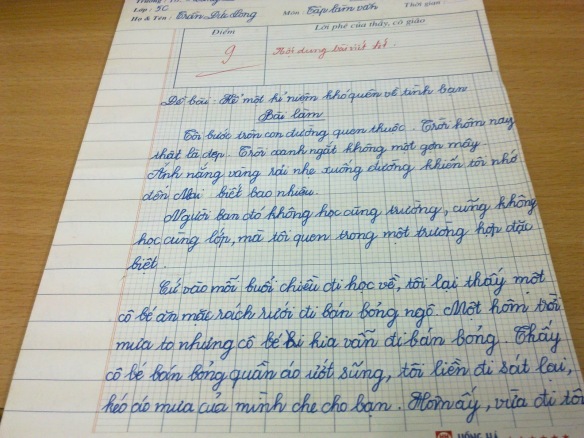 Lớp : 5C
Họ & Tên : Trần Đức Long
Môn : Tập làm văn
Thời gian
Điểm
Lời phê của thầy, cô giáo
9
Nội dung bài viết tốt.
Đề bài : Kể một kỉ niệm khó quên về tình bạn
Bài làm
Tôi bước trên con đường quen thuộc. Trời hôm nay
thật là đẹp. Trời xanh ngắt không một gợn mây.
Ánh nắng vàng rải nhẹ xuống đường khiến tôi nhớ
đến Mai biết bao nhiêu.
Người bạn đó không học cùng trường, cũng không
học cùng lớp, mà tôi quen trong một trường hợp đặc
biệt.
Cứ vào mỗi buổi chiều đi học về, tôi lại thấy một
cô bé ăn mặc rách rưới đi bán bỏng ngô. Một hôm trời
mưa to nhưng cô bé kia vẫn đi bán bỏng. Thấy
cô bé bán bỏng quần áo ướt sũng, tôi liền đi sát lại,
kéo áo mưa của mình che cho bạn. Hôm ấy, vừa đi tôi
HỒNG HÀ